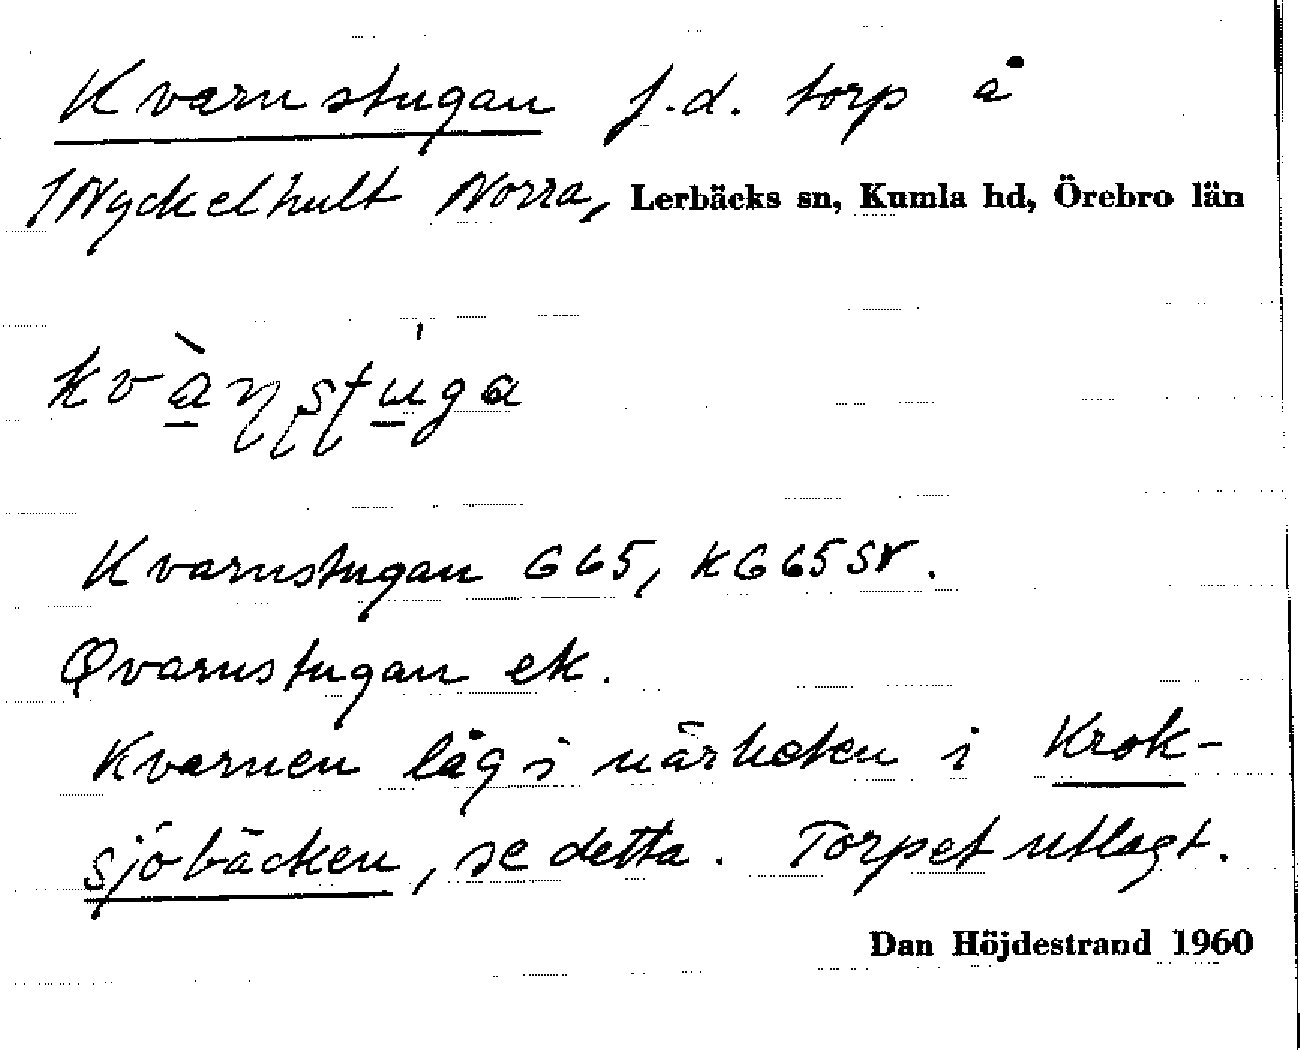 Kvarnstugan f.d. torp å
1 Nyckelhult Norra, Lerbäcks sn, Kumla hd, Örebro län
kvànstúga
Kvarnstugan G65, KG65SV.
Qvarnstugan ek.
Kvarnen låg i närheten i Krok-
sjöbäcken, se detta. Torpet utlagt.
Dan Höjdestrand 1960